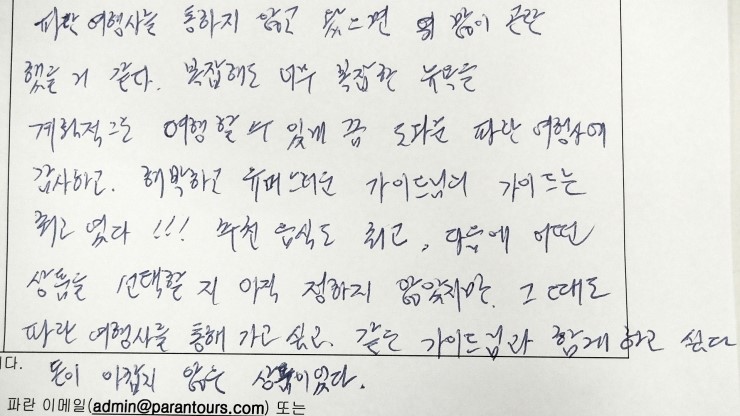 파란 여행사를 통하지 않고 왔으면 더 많이 곤란
했을 거 같다. 복잡해도 너무 복잡한 뉴욕을
계획적으로 여행할 수 있게 끔 도와준 파란 여행사에
감사하고. 해박하고 유머스러운 가이드님의 가이드는
최고 였다!!! 추천 음식도 최고, 다음에 어떤
상품을 선택할 지 아직 정하지 않았지만. 그 때도
파란 여행사를 통해 가고 싶고. 같은 가이드님과 함께 하고 싶다
니다. 돈이 아깝지 않은 상품이었다.
파란 이메일(admin@parantours.com) 또는